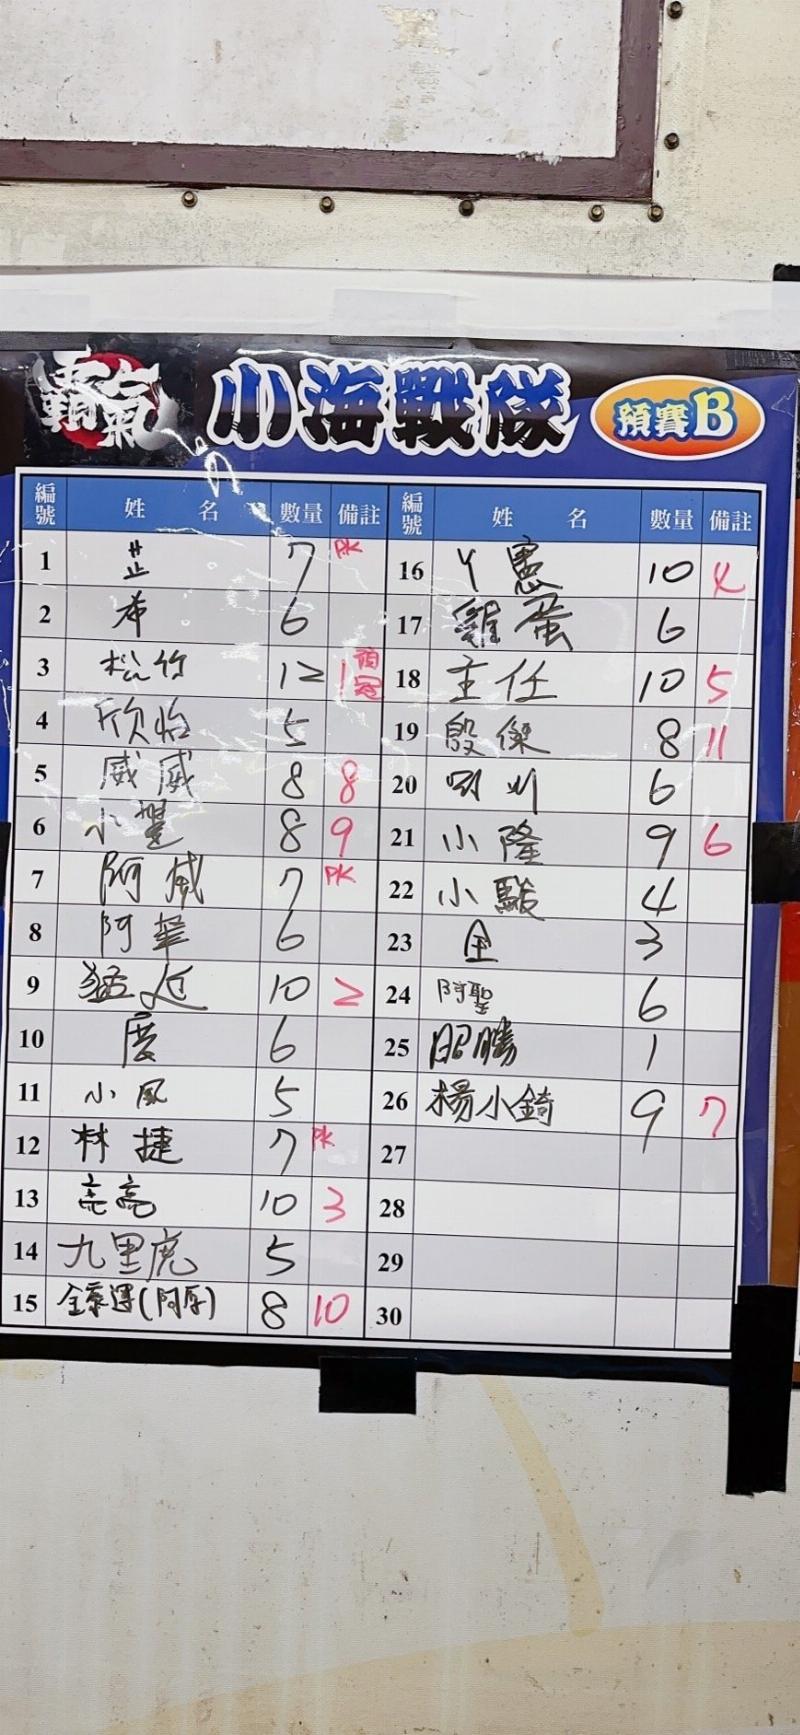 霸氣 小海戰隊 預賽B
編號 姓名 數量 備註
1 芷 7 PK
2 希 6
3 松竹 12 1 預冠
4 欣怡 5
5 威威 8 8
6 小 8 9
7 阿威 7 PK
8 阿華 6
9 猛 10 2
10 6
11 小風 5
12 林捷 7 PK
13 亮亮 10 3
14 九里虎 5
15 全家運(阿厚) 8 10
編號 姓名 數量 備註
16 ㄚ憲 10 4
17 雞蛋 6
18 主任 10 5
19 殷傑 8 11
20 6
21 小隆 9 6
22 小駿 4
23 全 3
24 阿聖 6
25 昭勝 1
26 楊小錡 9 7
27
28
29
30